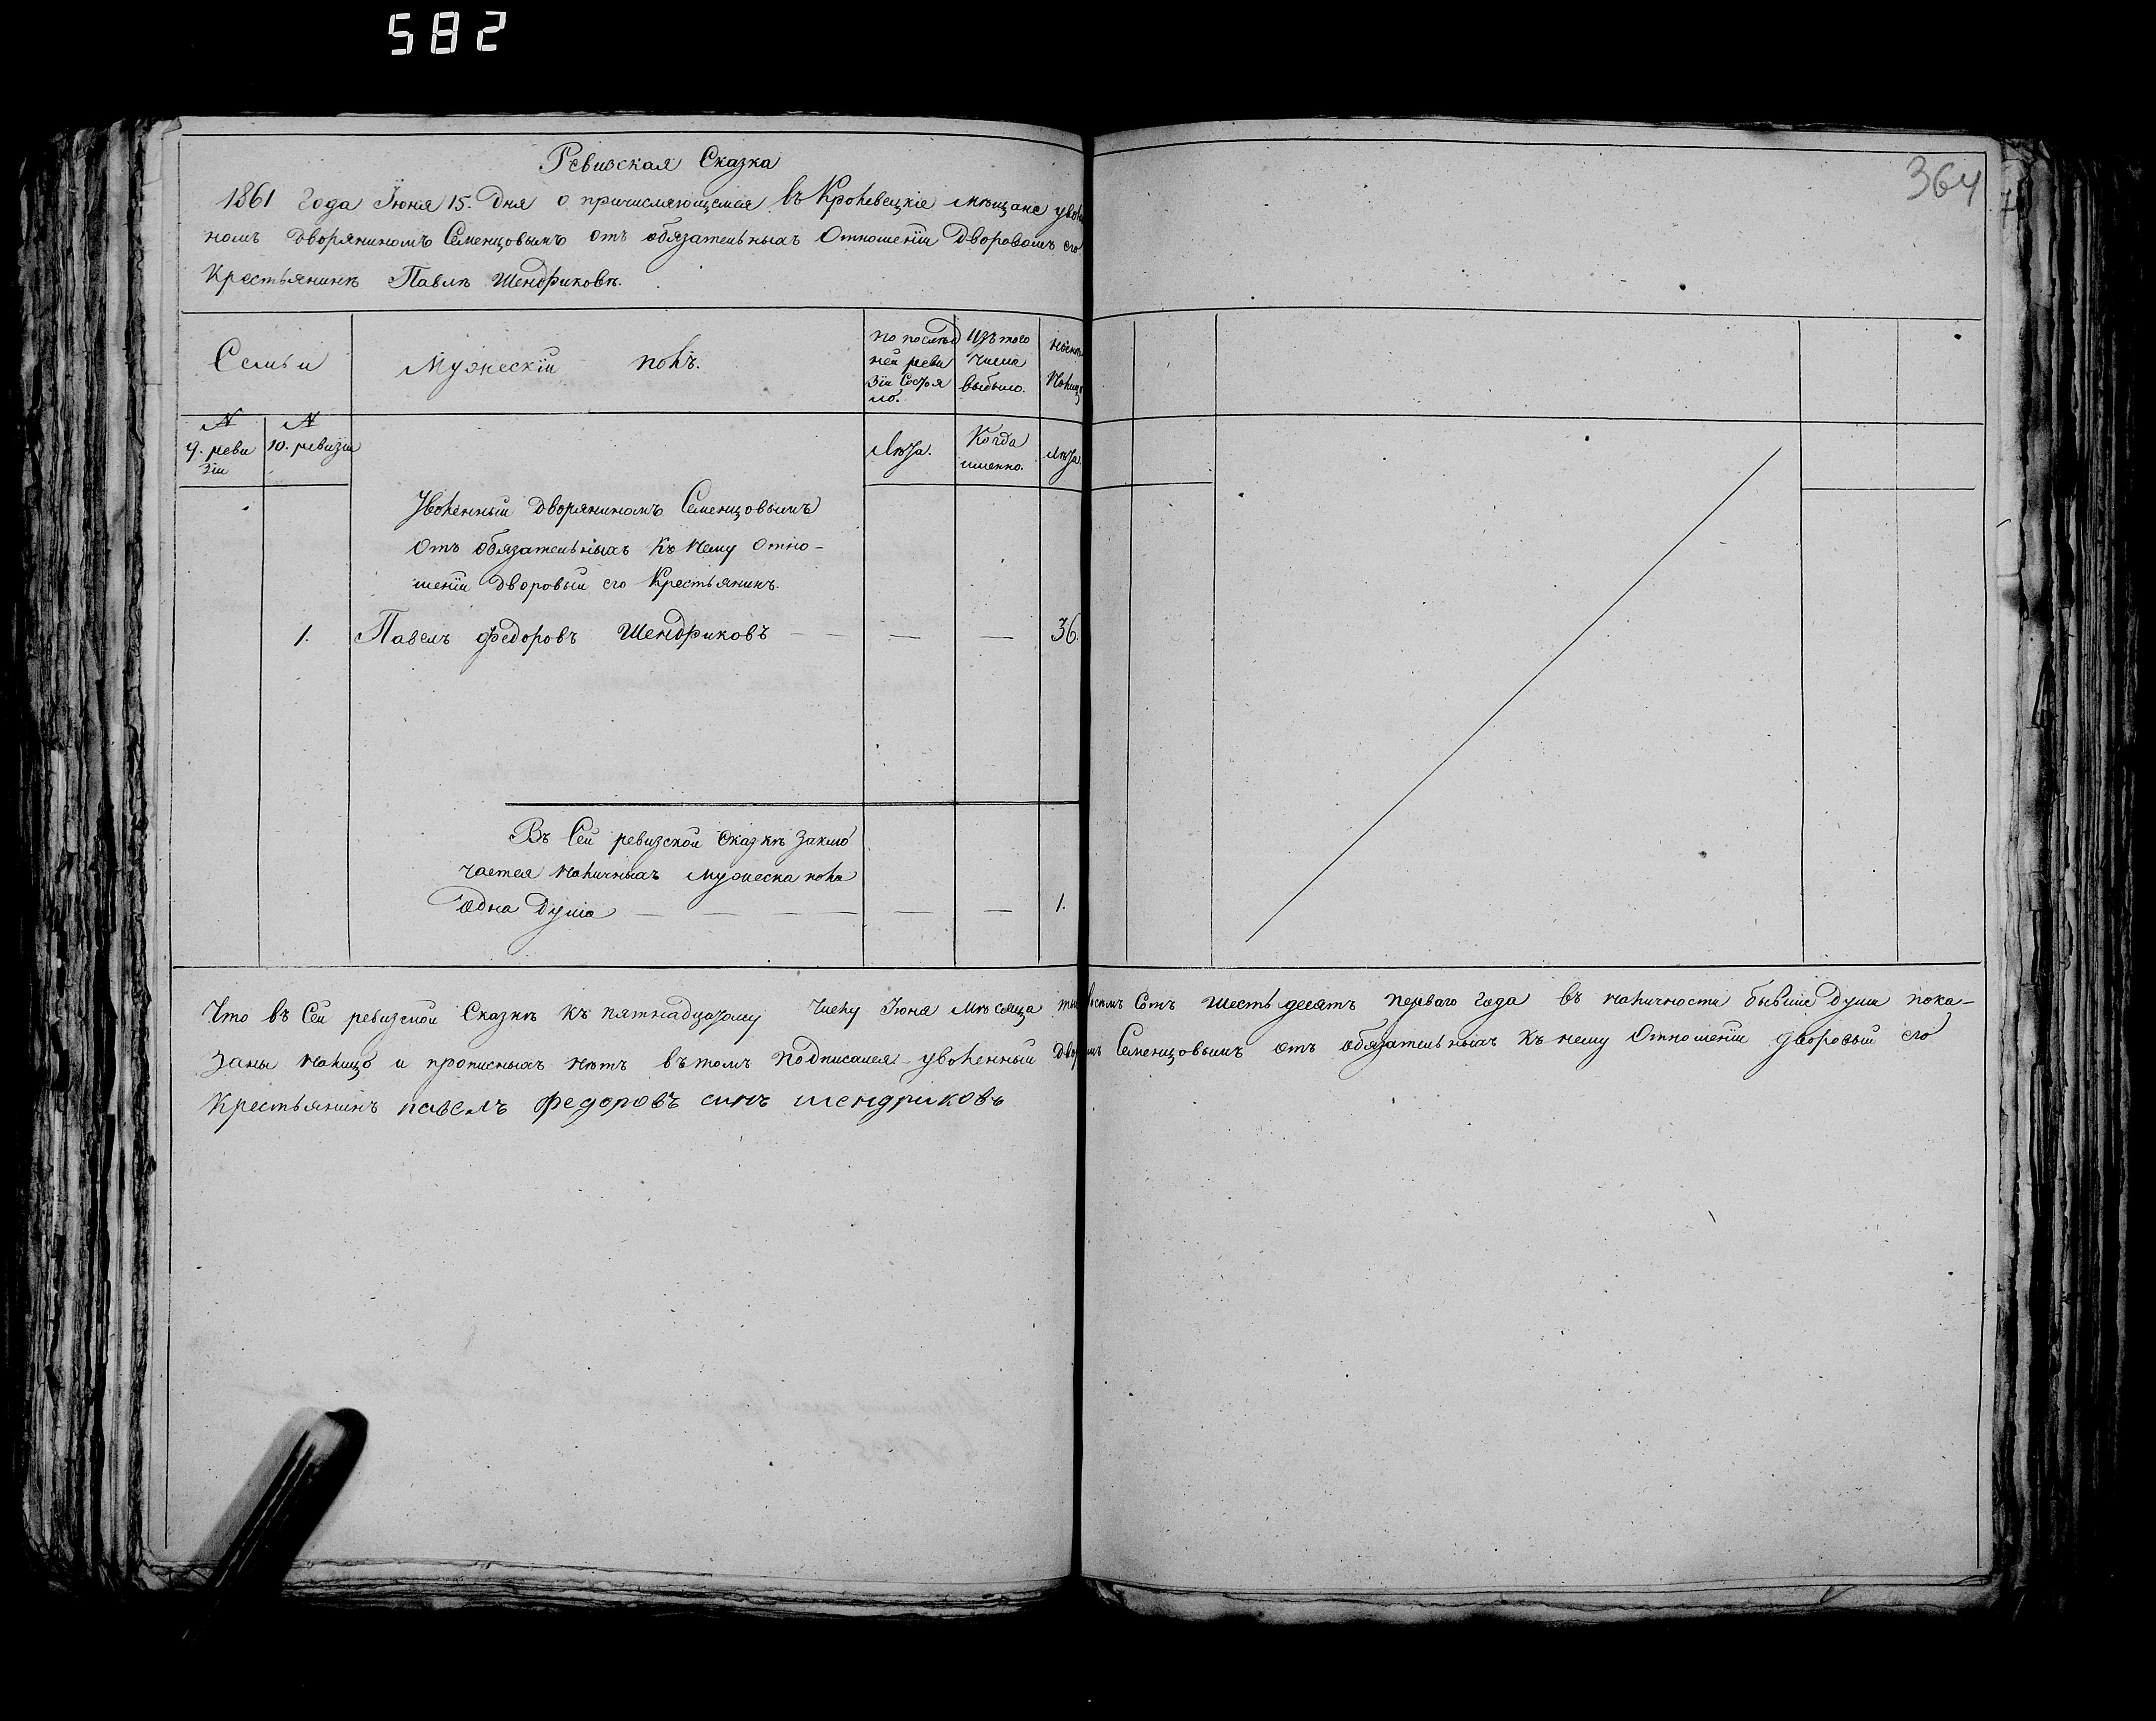 582
364
Ревизская Сказка
1861 года Іюня 15. Дня о причисляющемся въ Кролевецкіе мѣщане увол
номъ Дворяниномъ Семенцовымъ отъ обязательныхъ Отношеній Дворовомъ его
Крестьянинѣ Павлѣ Шендриковѣ.
Семьи
Мужескій полъ.
По послѣд
ней реви
зіи Состоя
ло.
Изъ того
числа
выбыло.
Нынѣ
Налицо
№
9. реви
зіи
№
10. ревизіи
Лѣта.
Когда
именно.
Лѣта.
Уволенный Дворяниномъ Семенцовымъ
Отъ обязательныхъ Къ Нему Отно-
шеній Дворовый его Крестьянинъ.
1. Павелъ Федоровъ Шендриковъ — — — 36.
Въ Сей ревизской Сказкѣ Заклю
чается Наличныхъ мужеска пола
Одна Душа — — — — — — 1.
Что въ Сей ревизской Сказкѣ Къ пятнадцатому Числу Іюня Мѣсяца Сотъ Шестьдесятъ перваго года въ наличности бывшіе Души пока-
заны Налицо и прописныхъ нѣтъ въ томъ Подписался уволенный Семенцовымъ отъ обязательныхъ Къ нему Отношеній дворовый его
Крестьянинъ павелъ федоровъ синъ шендриковъ